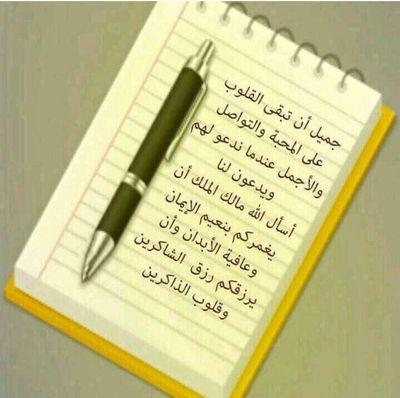 جميل أن تبقى القلوب
على المحبة والتواصل
والأجمل عندما ندعو لهم
ويدعون لنا
أسأل الله مالك الملك أن
يغمركم بنعيم الإيمان
وعافية الأبدان وأن
يرزقكم رزق الشاكرين
وقلوب الذاكرين